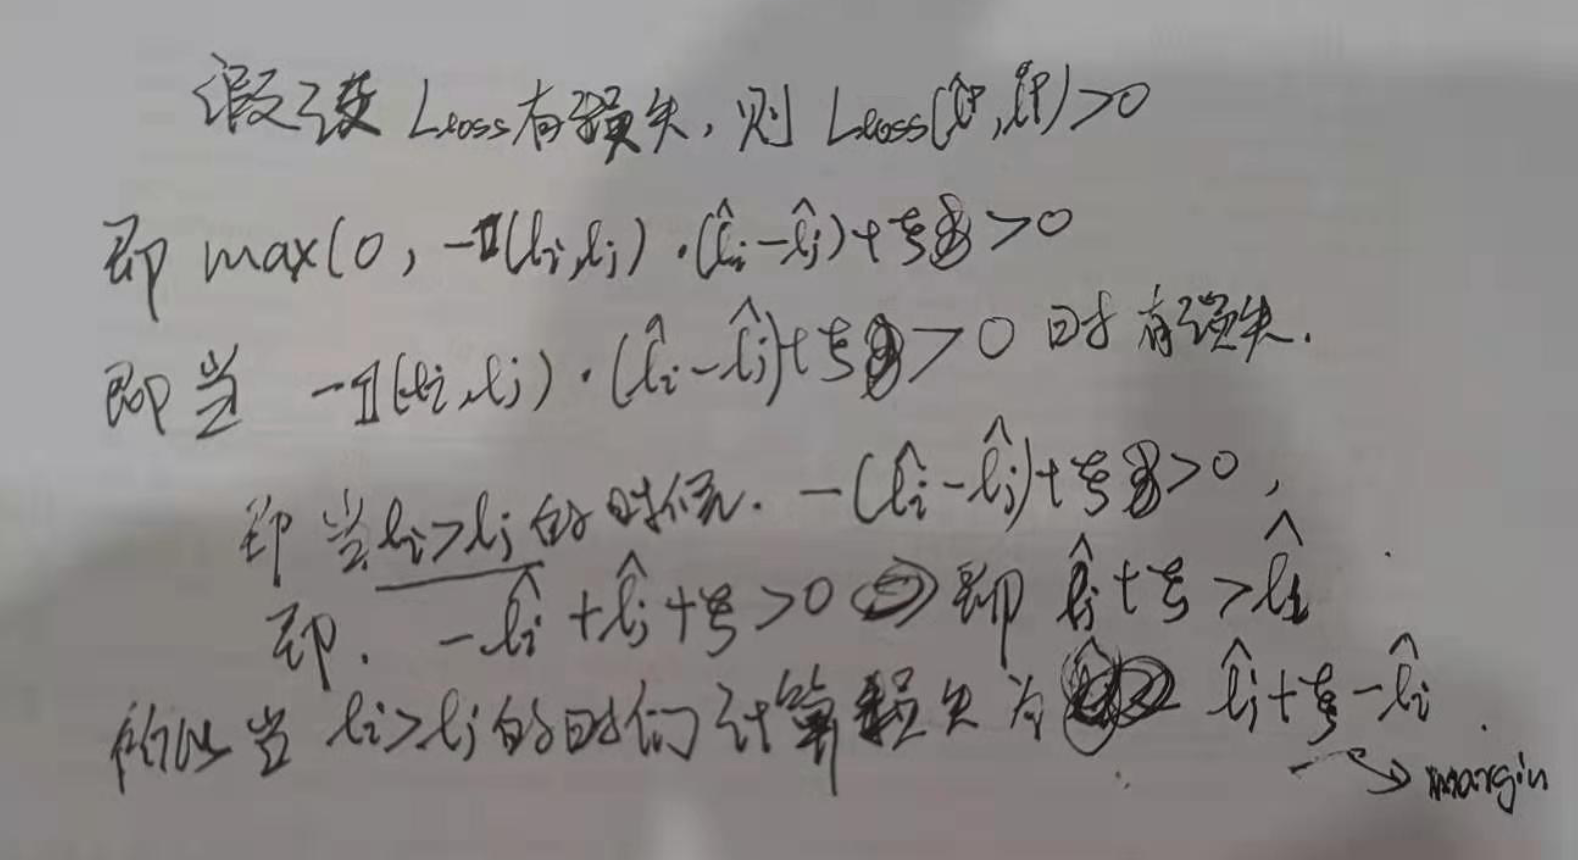 假设 Lloss有损失，则 Lloss(l̂ᵖ, lᵖ)>0
即 max(0, -𝟙(li,lj)·(l̂i-l̂j)+ξ >0
即当 -𝟙(li,lj)·(l̂i-l̂j)+ξ>0 时有损失.
即当li>lj的时候. -(l̂i-l̂j)+ξ>0,
即. -l̂i+l̂j+ξ>0 即 l̂j+ξ>l̂i
所以当 li>lj的时们计算损失为 l̂j+ξ-l̂i.
→ margin